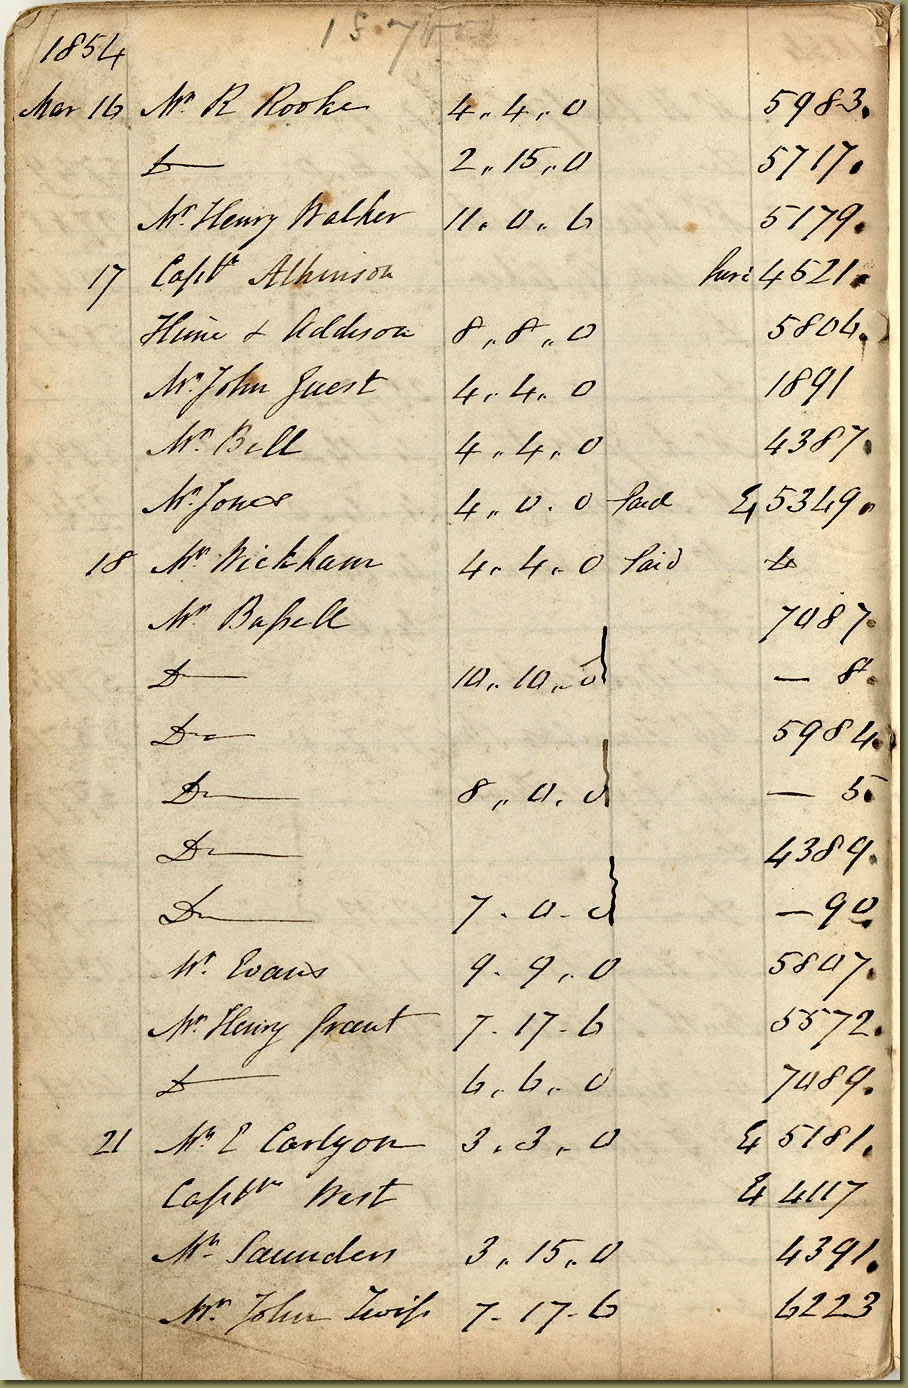 1854
Mar 16 Mr. R Rooke 4 „ 4 „ 0 5983.
D— 2 „ 15 „ 0 5717.
Mr. Henry Walker 11 . 0 „ 6 5179.
17 Captn Atkinson 4521.
Hime & Addison 8 „ 8 „ 0 5806.
Mr. John Guest 4 „ 4 „ 0 1891
Mr. Bell 4 „ 4 „ 0 4387.
Mr. Jones 4 „ 0 . 0 Paid 5349.
18 Mr. Wickham 4 . 4 „ 0 Paid
Mr. Bassell 7087.
D— 10 „ 10 „ 0 — 8.
Do— 5984.
Do— 8 „ 0 . 0 — 5.
Do— 4389.
Do— 7 - 0 - 0 — 90.
Mr. Evans 9 - 9 „ 0 5807.
Mr. Henry Grant 7 - 17 - 6 5572.
D— 6 „ 6 „ 0 7089.
21 Mr. E Carlyon 3 . 3 „ 0 5181.
Captn West 4117
Mr. Saunders 3 „ 15 „ 0 4391.
Mr. John Twiss 7 - 17 - 6 6223